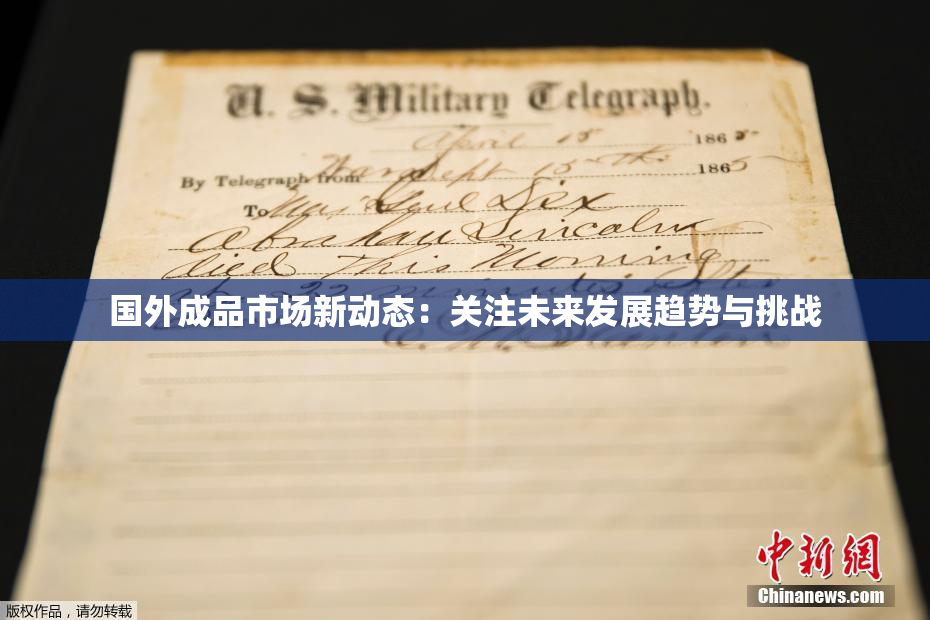 U. S. Military Telegraph.
April 15 1865
By Telegraph from War Dept 15th 1865
To Maj Genl Dix
Abraham Lincoln
died This Morning
at 22 minutes after
国外成品市场新动态：关注未来发展趋势与挑战
中新網
Chinanews.com
版权作品，请勿转载